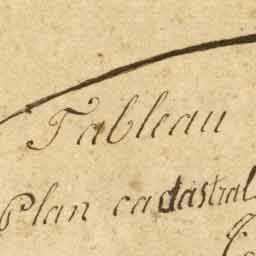 Tableau
Plan cadastral